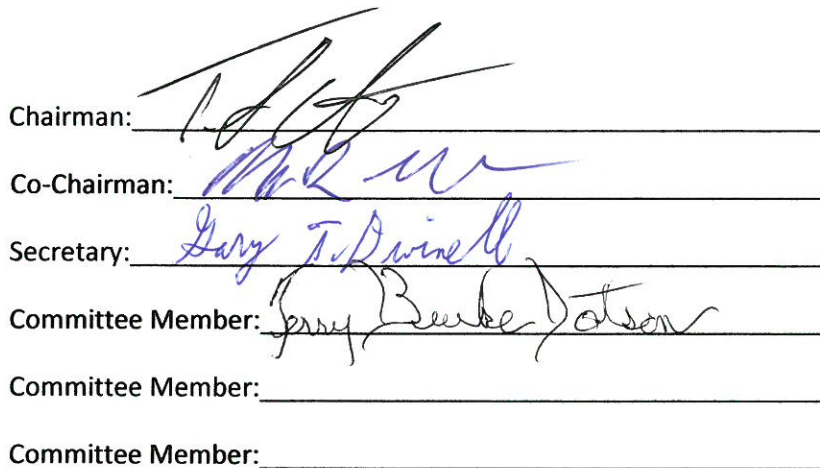 Chairman:
Co-Chairman:
Secretary: Gary T. Dwinell
Committee Member: Burke Dotson
Committee Member:
Committee Member: